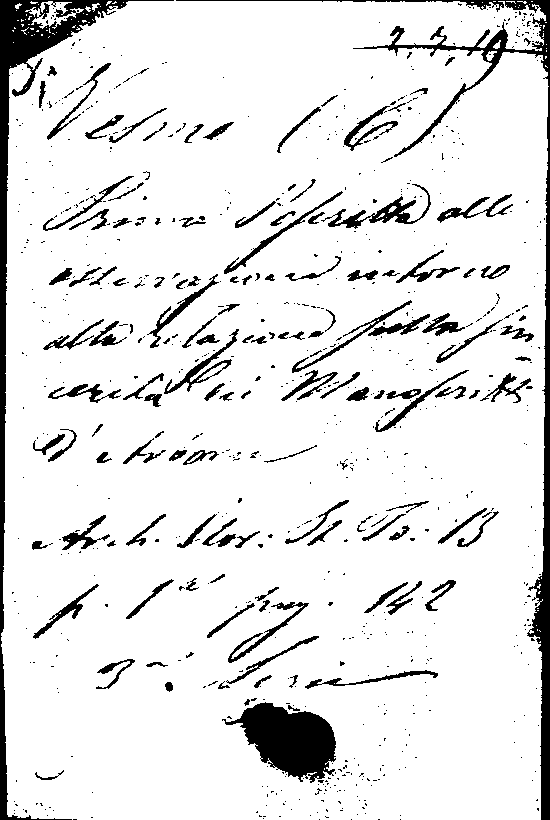 2.7.10
Di
Vesme (C)
Prima Poscritta alle
osservazioni intorno
alla relazione sulla sin
cerità dei Manoscritti
d'Arborea
Arch. Stor: It. To: 13
p. 1a pag. 142
3a. Serie